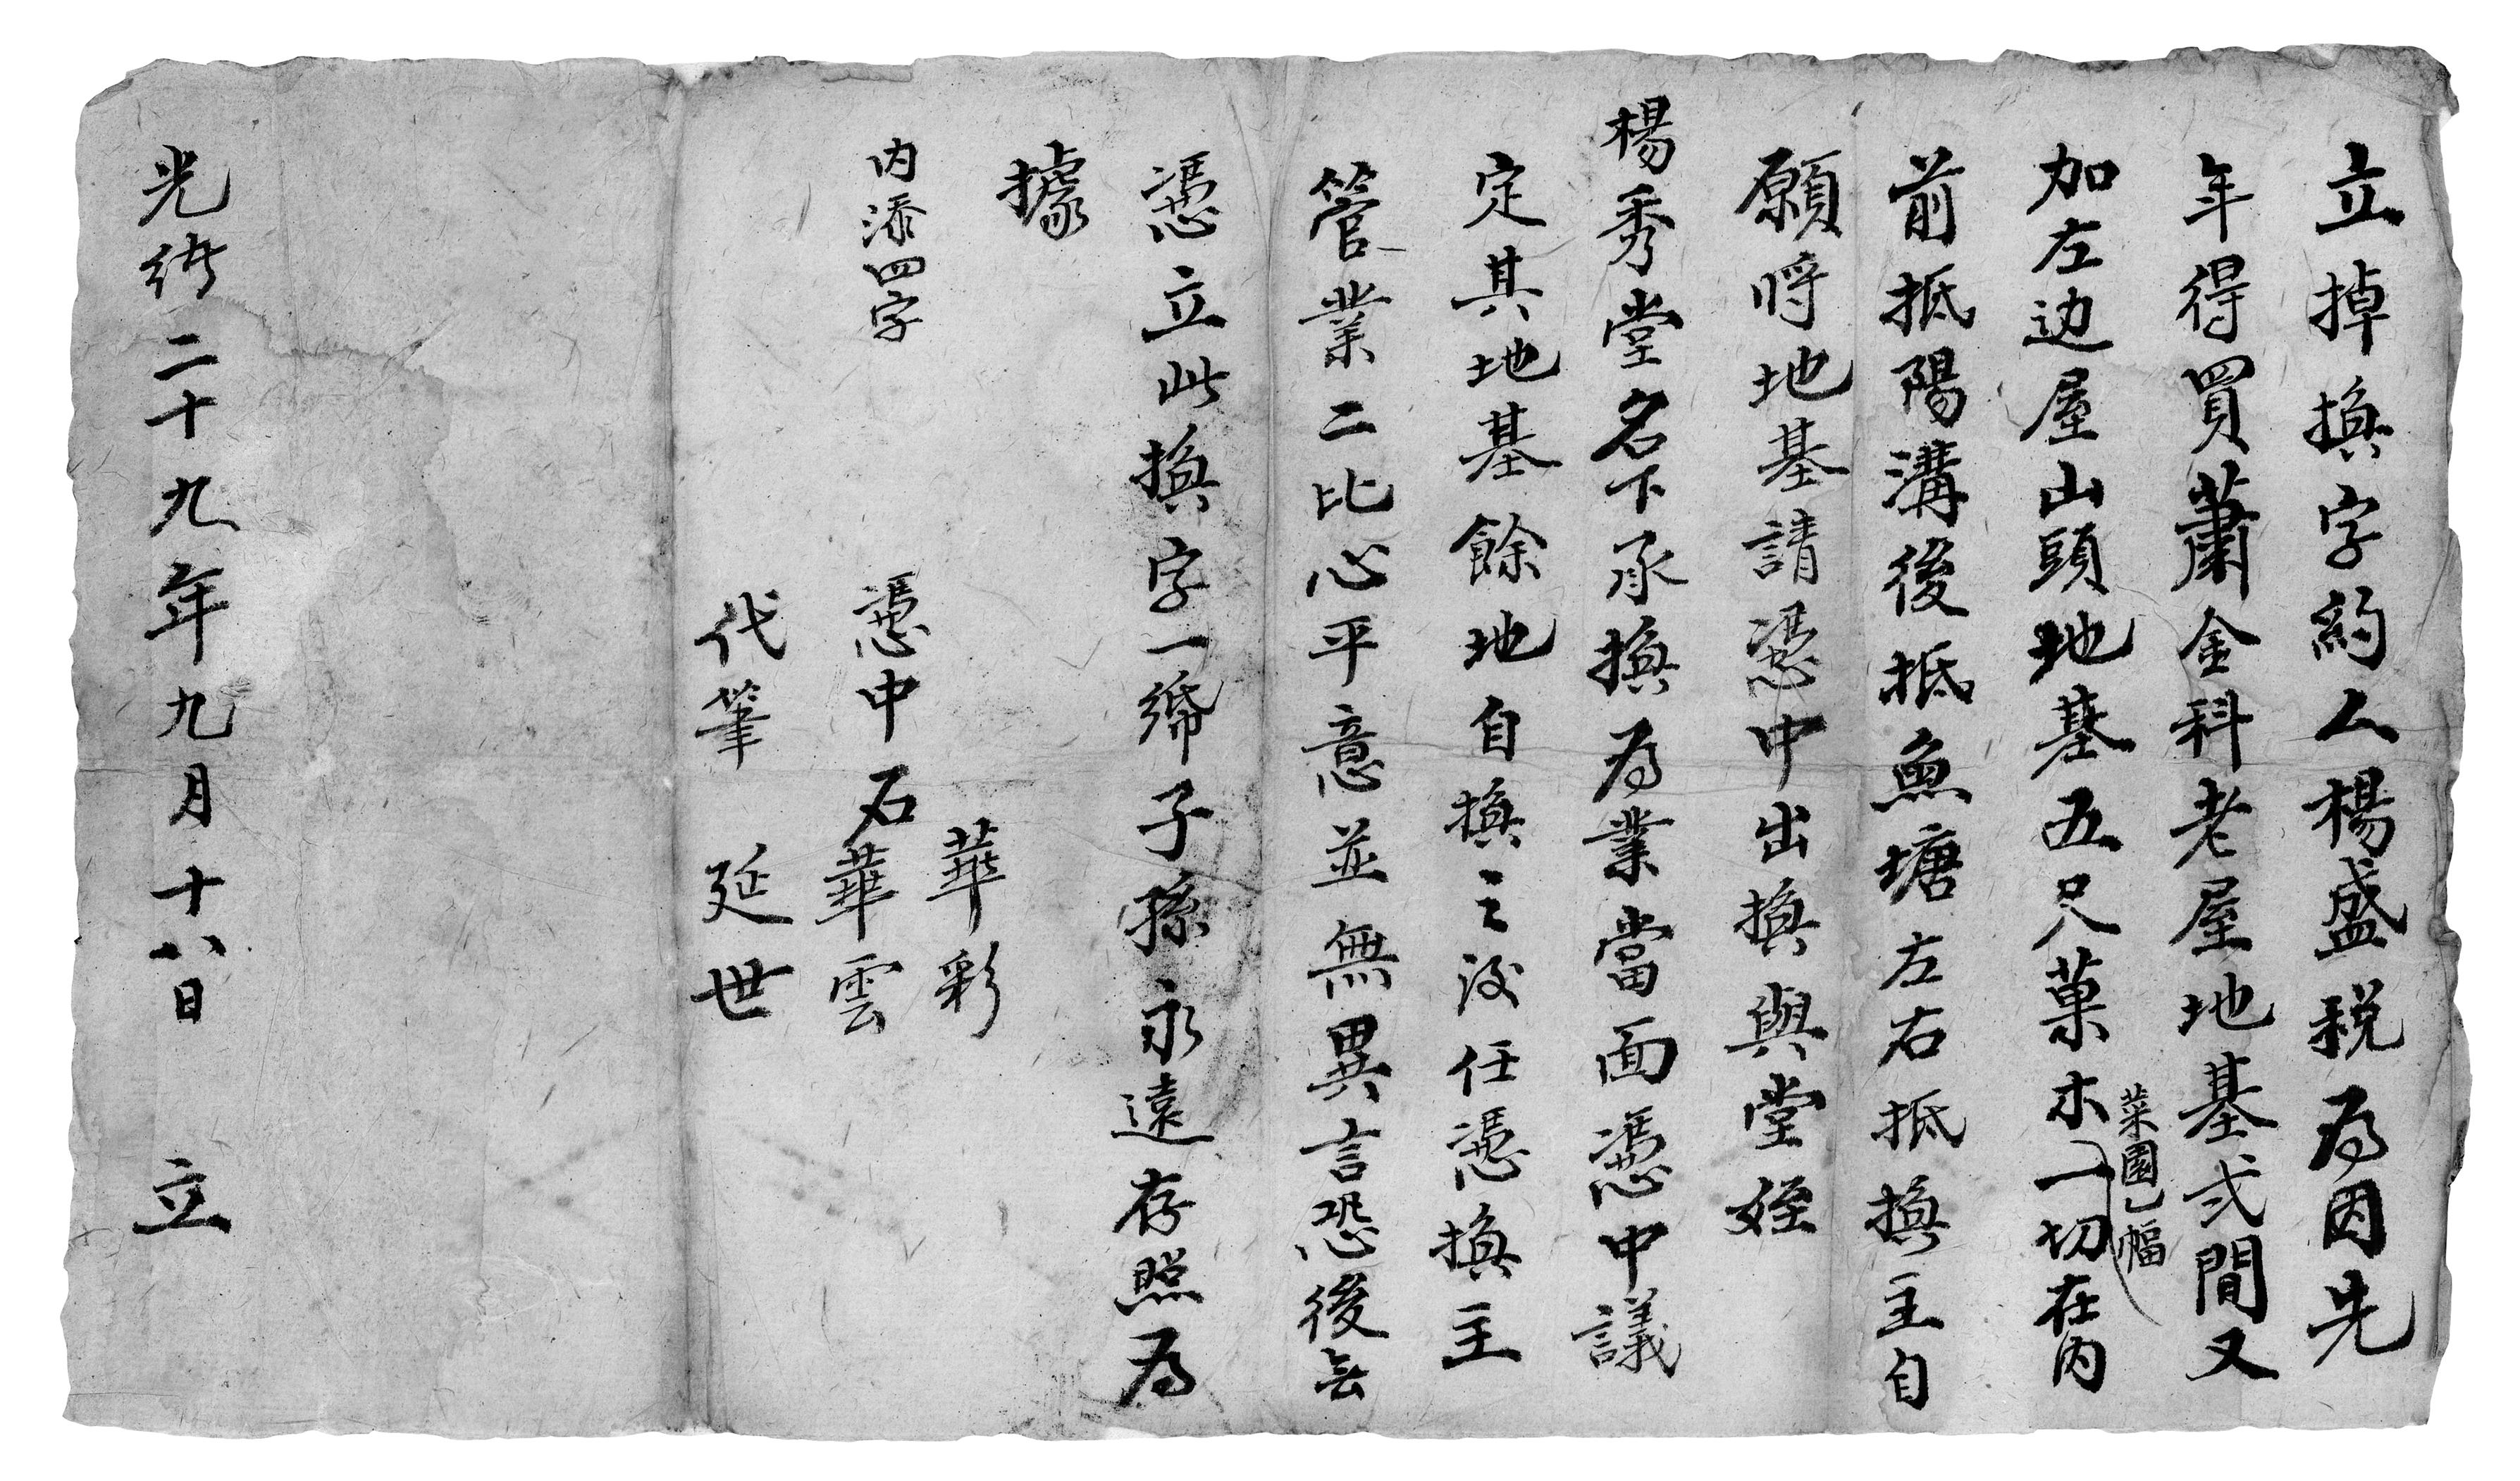 立掉換字約人楊盛税為因先
年得買蕭金科老屋地基弍間又
菜園乙幅
加左边屋山頭地基五尺菓木一切在內
前抵陽溝後抵魚塘左右抵換主自
願將地基請憑中出換與堂姪
楊秀堂名下承換為業當面憑中議
定其地基餘地自換之後任憑換主
管業二比心平意並無異言恐後無
憑立此換字一紙子孫永遠存照為
據
內添四字
華彩
憑中石華雲
代筆 延世
光緒二十九年九月十八日 立